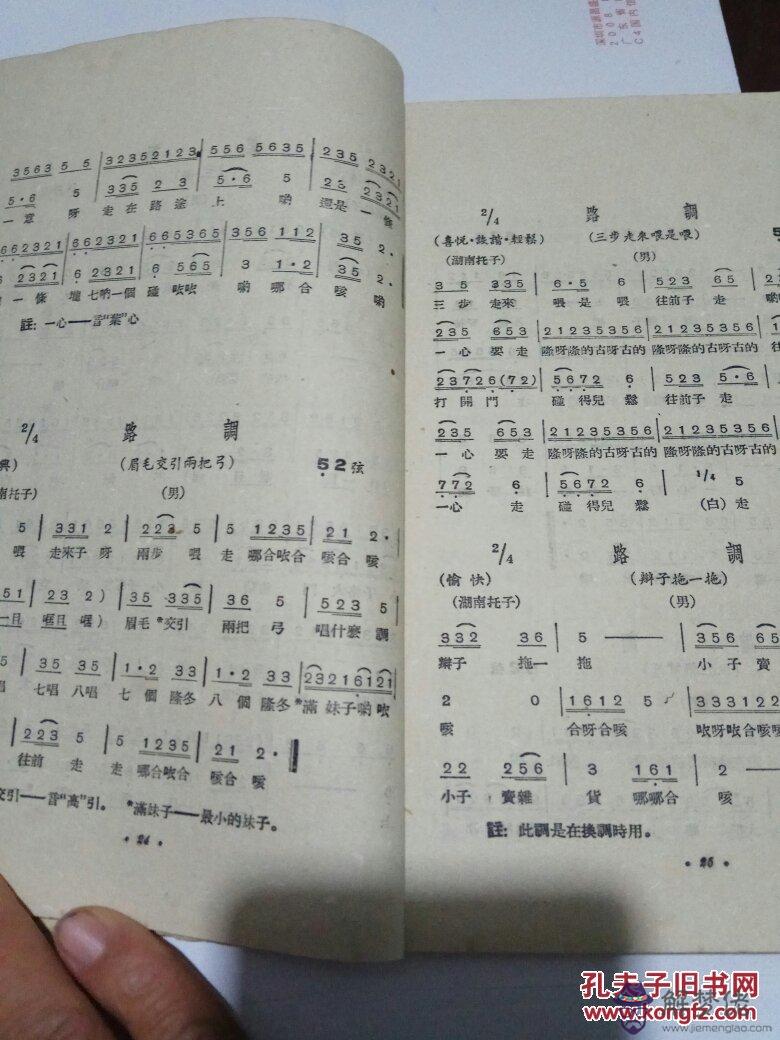 3563 5 5 | 32352123 | 556 5635 | 235 2321
5·6 5 335 2 3 5·6 5 23 2321
一意 呀 走在 路途 上 喲 還是 一條
662321 | 662321 | 665365 | 356 112 | 335 2·
6 2321 6 2321 6 565 3 1·2 335 2·
一條 壠七喲一個 碰 吹吹 喲 哪合 咳 喲
註：一心——音“葉”心
2/4 路 調
(眉毛交引兩把弓) 52弦
南托子) (男)
331 2 | 223 5 | 5 1235 | 21 2·
喂 走來子 呀 兩步 喂 走 哪合吹合 咳合 咳
51 | 23 2) | 235 35 | 36 5 | 523 5
一且 哐且 哐) 眉毛 *交引 兩把 弓 唱什麽 調
35 35 | 1·2 33 | 1·2 33 | 23216121
七唱 八唱 七 個 隆冬 八 個 隆冬 *滿 妹子喲吹
223 5 | 5 1235 | 21 2·
往前 走 走 哪合吹合 咳合 咳
交引——音“高”引。 *滿妹子——最小的妹子。
·24·
2/4 路 調
(喜悅·詼諧·輕鬆) (三步走來喂是喂) 5
(湖南托子) (男)
3 5 335 | 6·5 5 | 523 65
三步 走來 喂 是 喂 往前子 走
235 653 | 21235356 | 21235356
一心 要走 隆呀隆的古呀古的 隆呀隆的古呀古的
23726(72) | 5672 6 | 523 5·6
打 開 門 碰 得兒 鬆 往前子 走
235 653 | 21235356 | 21235356
一心 要走 隆呀隆的古呀古的 隆呀隆的古呀古的
772 6 | 5672 6 | 1/4 5
一心 走 碰 得兒 鬆 (白) 走
2/4 路 調
(愉 快) (辮子拖一拖)
(湖南托子) (男)
332 36 | 5 —— | 356 65
辮子 拖一 拖 小 子 賣
2 0 | 1612 5 | 333122
咳 合呀合咳 吹呀吹合咳
22 256 | 3 161 | 2 ——
小子 賣雜 貨 哪哪合 咳
註：此調是在換調時用。
·25·
2008
C4國内信
孔夫子旧书网
www.kongfz.com
解梦佬
www.jiemenglao.com